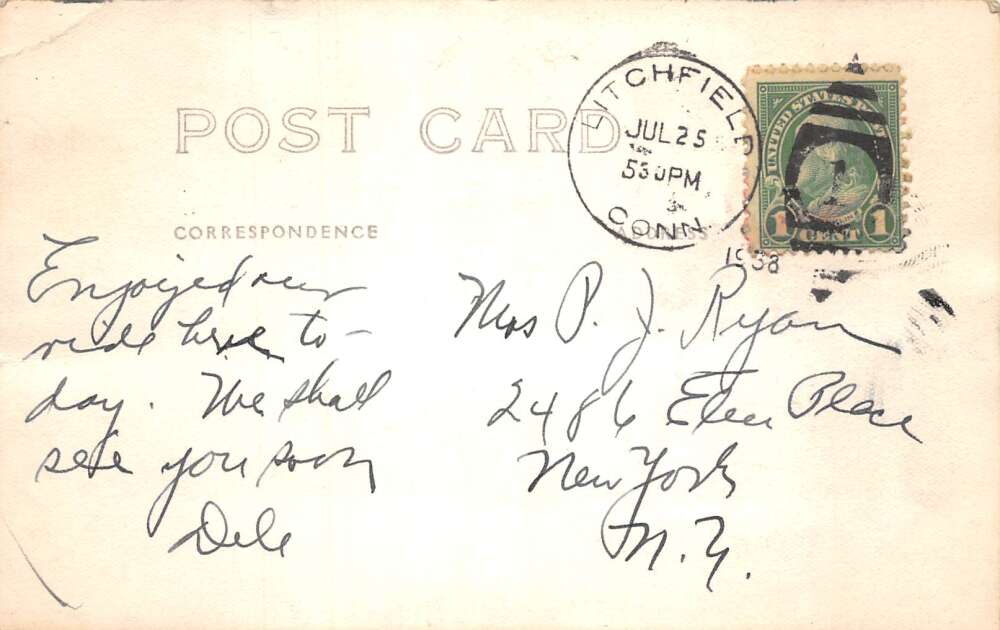 POST CARD
CORRESPONDENCE
ADDRESS
LITCHFIELD
JUL 25
5 30 PM
CONN
1938
UNITED STATES
1 CENT 1
Enjoyed our
ride here to-
day. We shall
see you soon
Dele
Mrs P. J. Ryan
2486 Elm Place
New York
N.Y.